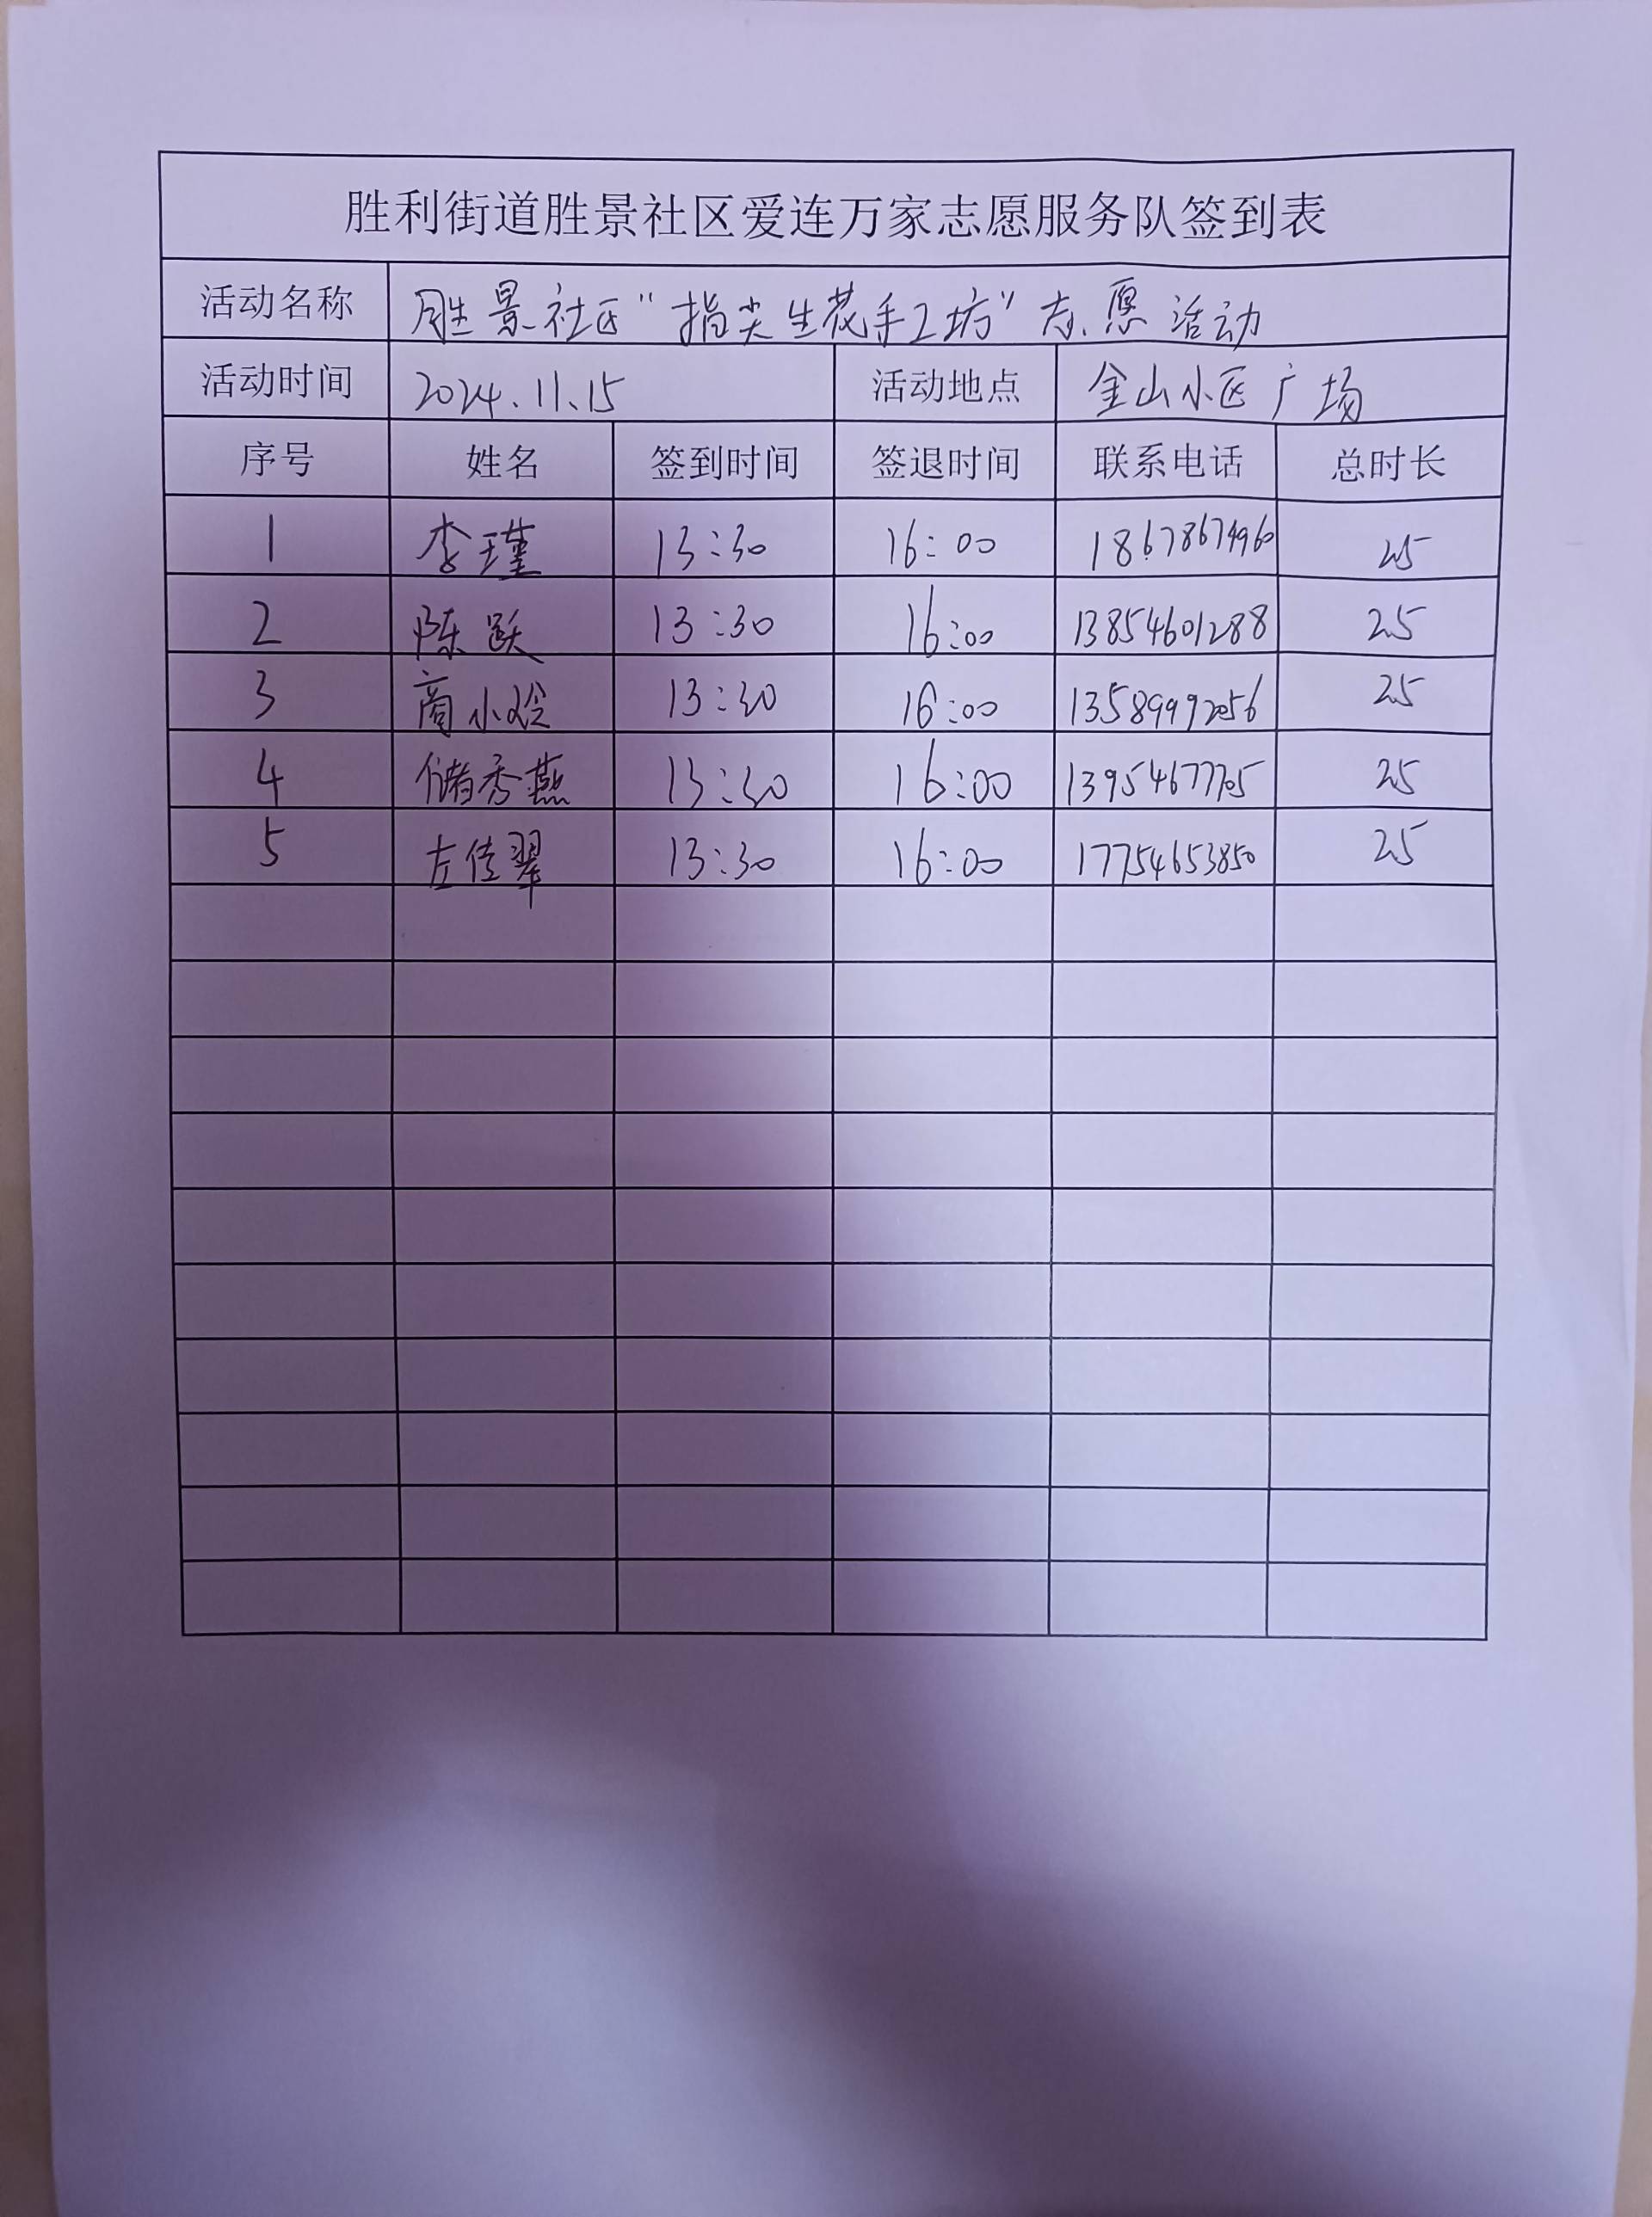 胜利街道胜景社区爱连万家志愿服务队签到表
活动名称 胜景社区“指尖生花手工坊”志愿活动
活动时间 2024.11.15 活动地点 金山小区广场
序号 姓名 签到时间 签退时间 联系电话 总时长
1 李瑾 13:30 16:00 18678674960 25
2 陈跃 13:30 16:00 13854601288 25
3 商小玲 13:30 16:00 13589992056 25
4 储秀燕 13:30 16:00 13954677705 25
5 左传翠 13:30 16:00 17754653850 25